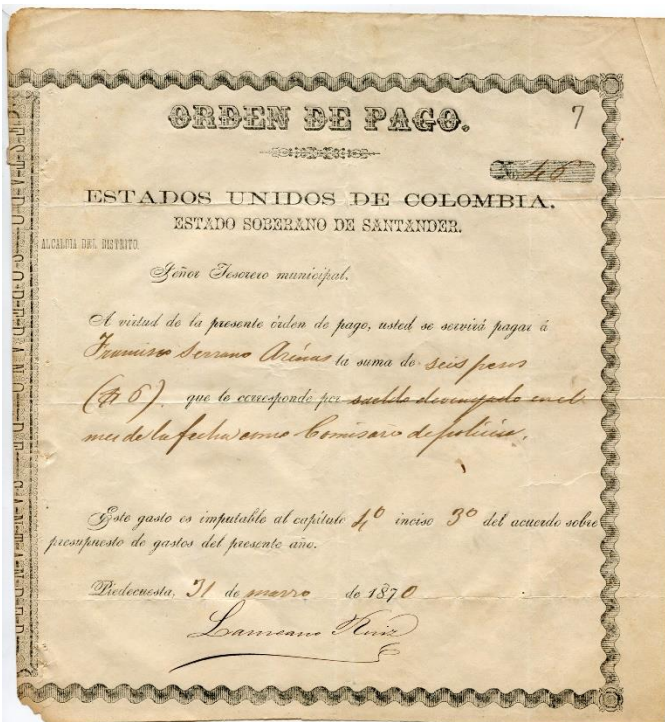 ORDEN DE PAGO.
7
N. 46
ESTADOS UNIDOS DE COLOMBIA.
ESTADO SOBERANO DE SANTANDER.
ALCALDIA DEL DISTRITO.
Señor Tesorero municipal.
A virtud de la presente órden de pago, usted se servirá pagar á
Francisco Serrano Arénas la suma de seis pesos
($ 6) que le corresponde por sueldo devengado en el
mes de la fecha como Comisario de policia.
Este gasto es imputable al capítulo 4º inciso 3º del acuerdo sobre
presupuesto de gastos del presente año.
Piedecuesta, 31 de marzo de 1870
Laureano Ruiz
ESTADO SOBERANO DE SANTANDER